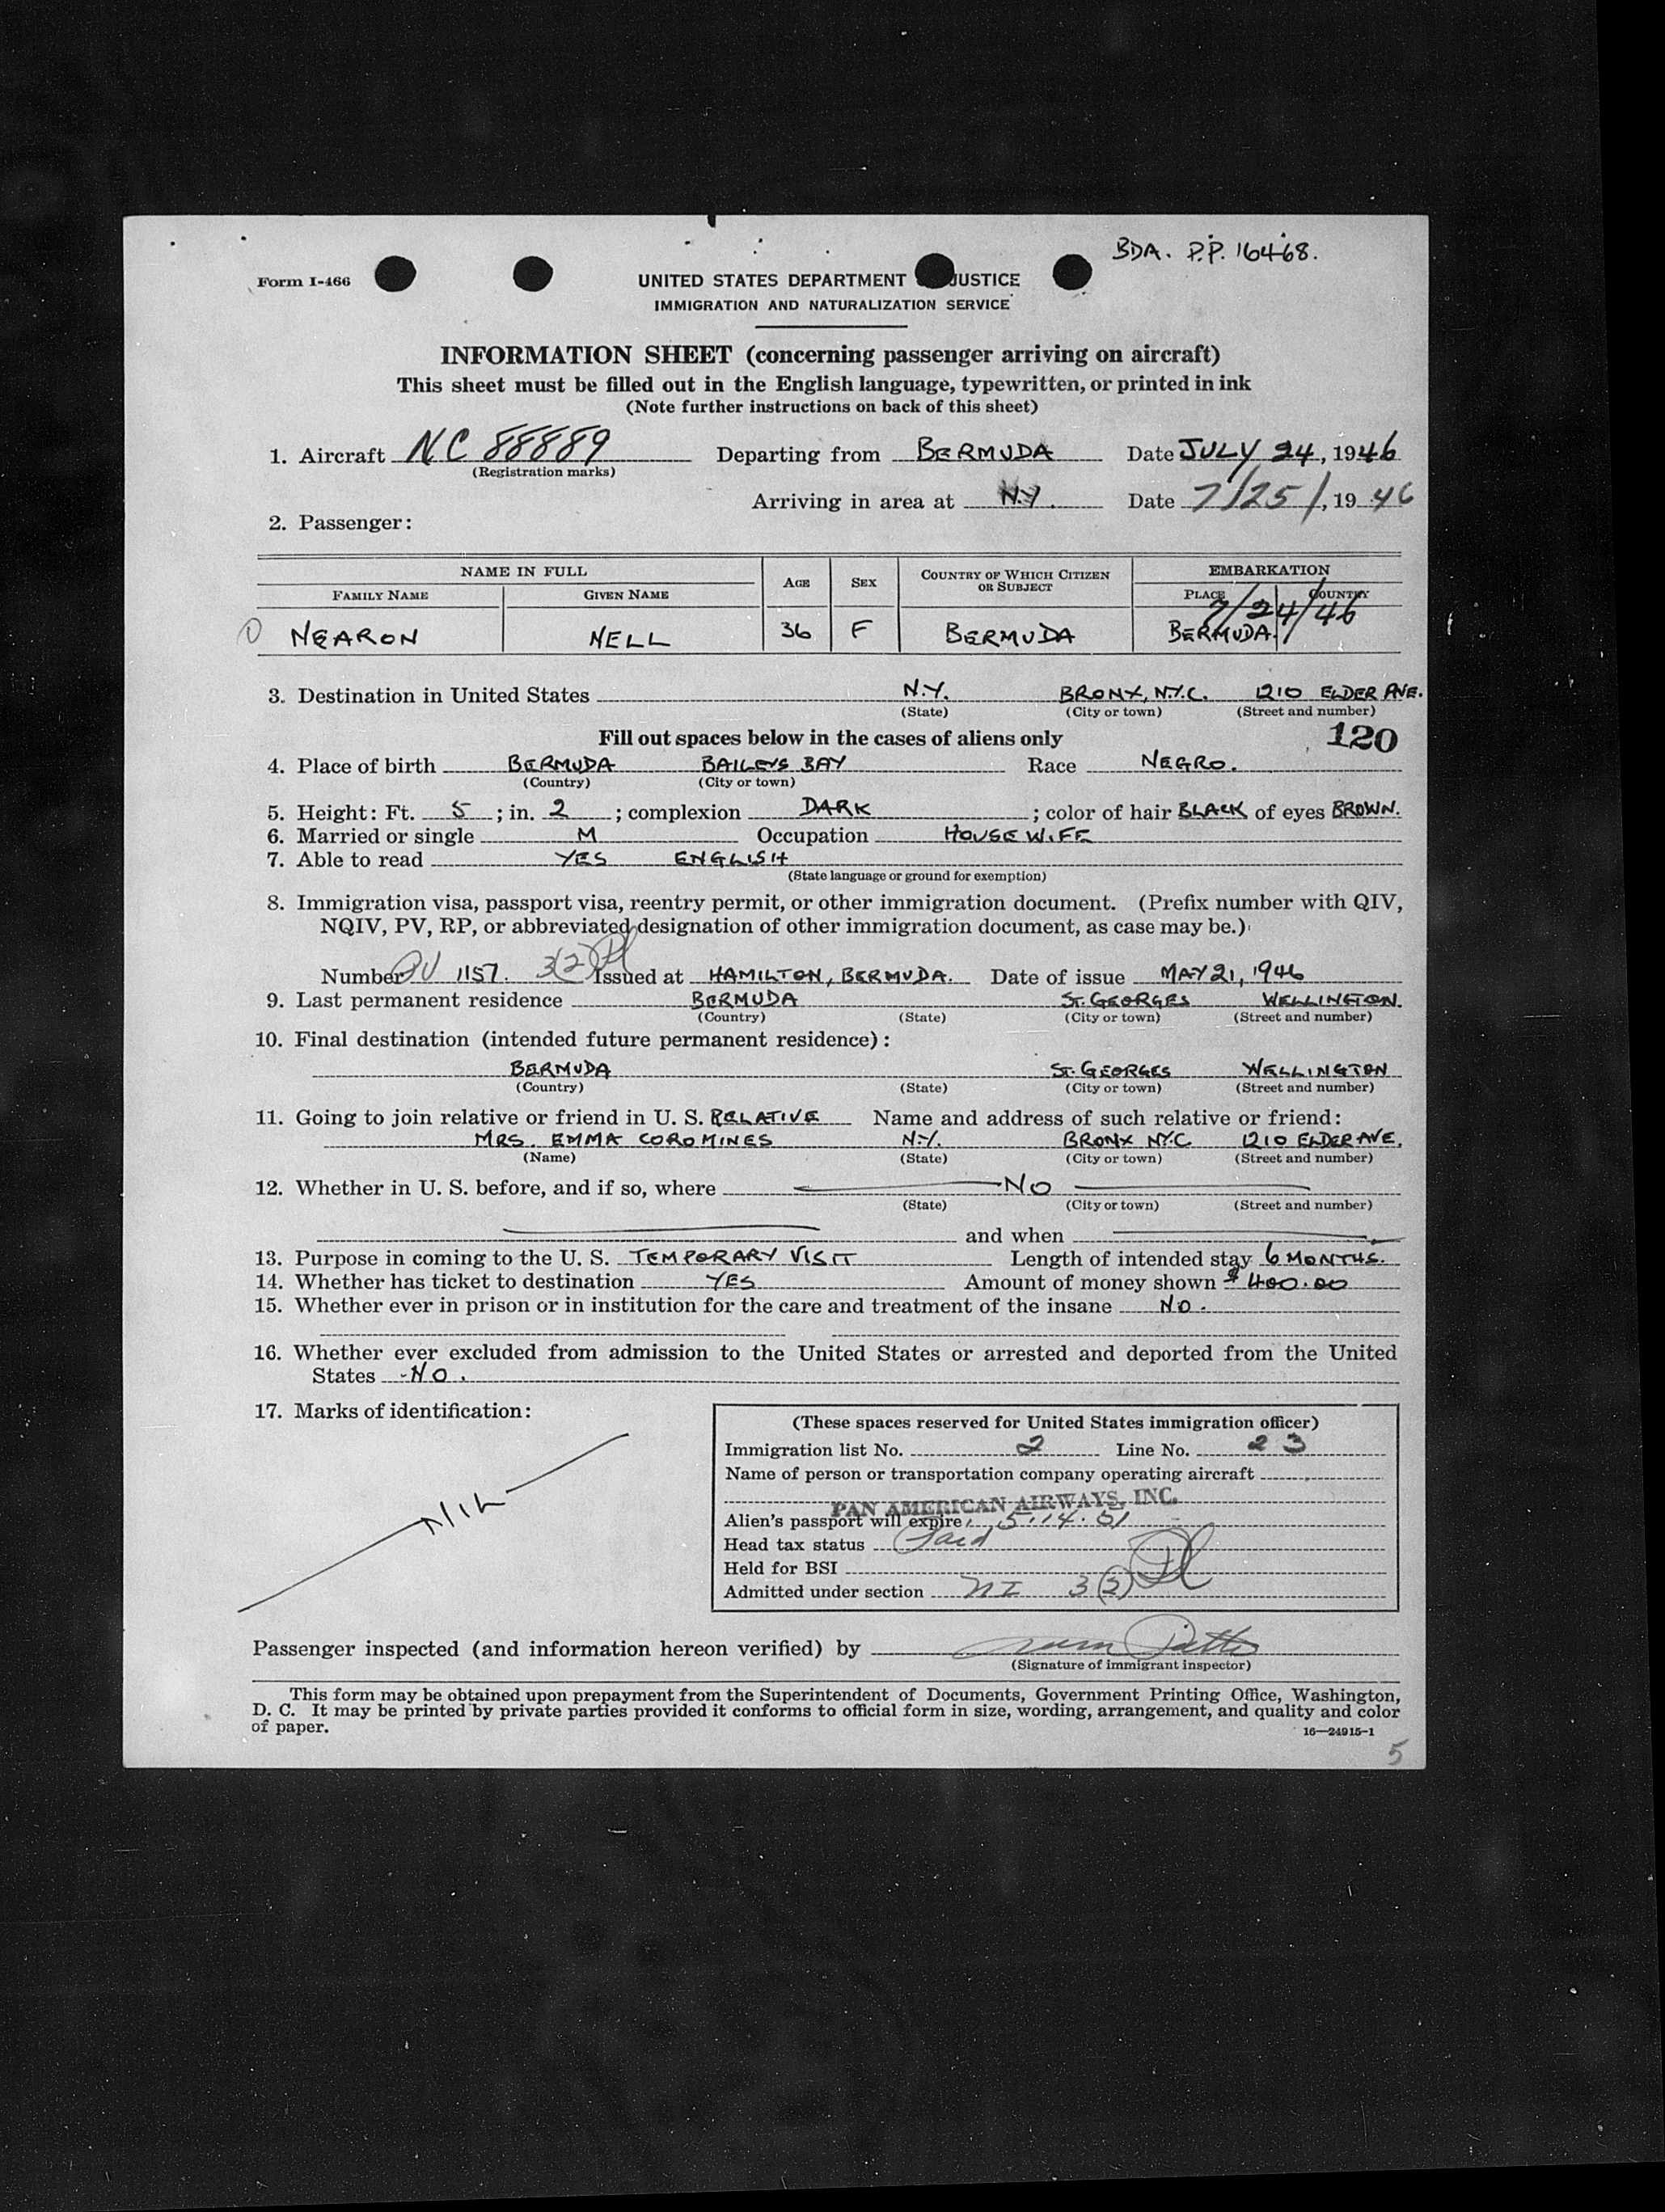 BDA. P.P. 16468.
Form I-466
UNITED STATES DEPARTMENT JUSTICE
IMMIGRATION AND NATURALIZATION SERVICE
INFORMATION SHEET (concerning passenger arriving on aircraft)
This sheet must be filled out in the English language, typewritten, or printed in ink
(Note further instructions on back of this sheet)
1. Aircraft NC 88889 Departing from BERMUDA Date JULY 24, 1946
(Registration marks)
Arriving in area at N.Y. Date 7/25/, 19 46
2. Passenger:
NAME IN FULL AGE SEX COUNTRY OF WHICH CITIZEN OR SUBJECT EMBARKATION
FAMILY NAME GIVEN NAME PLACE COUNTRY
7/24/46
NEARON NELL 36 F BERMUDA BERMUDA
3. Destination in United States N.Y. BRONX, N.Y.C. 1210 ELDER AVE.
(State) (City or town) (Street and number)
Fill out spaces below in the cases of aliens only 120
4. Place of birth BERMUDA BAILEYS BAY Race NEGRO.
(Country) (City or town)
5. Height: Ft. 5 ; in. 2 ; complexion DARK ; color of hair BLACK of eyes BROWN.
6. Married or single M Occupation HOUSEWIFE
7. Able to read YES ENGLISH
(State language or ground for exemption)
8. Immigration visa, passport visa, reentry permit, or other immigration document. (Prefix number with QIV,
NQIV, PV, RP, or abbreviated designation of other immigration document, as case may be.)
Number PV 1157. 3(2) Issued at HAMILTON, BERMUDA. Date of issue MAY 21, 1946
9. Last permanent residence BERMUDA ST. GEORGES WELLINGTON.
(Country) (State) (City or town) (Street and number)
10. Final destination (intended future permanent residence):
BERMUDA ST. GEORGES WELLINGTON
(Country) (State) (City or town) (Street and number)
11. Going to join relative or friend in U. S. RELATIVE Name and address of such relative or friend:
MRS. EMMA COROMINES N.Y. BRONX N.Y.C 1210 ELDER AVE.
(Name) (State) (City or town) (Street and number)
12. Whether in U. S. before, and if so, where NO
(State) (City or town) (Street and number)
and when
13. Purpose in coming to the U. S. TEMPORARY VISIT Length of intended stay 6 MONTHS.
14. Whether has ticket to destination YES Amount of money shown $ 400.00
15. Whether ever in prison or in institution for the care and treatment of the insane NO.
16. Whether ever excluded from admission to the United States or arrested and deported from the United
States NO.
17. Marks of identification:
NIL
(These spaces reserved for United States immigration officer)
Immigration list No. 2 Line No. 23
Name of person or transportation company operating aircraft
PAN AMERICAN AIRWAYS, INC.
Alien's passport will expire 5.14.51
Head tax status Paid
Held for BSI
Admitted under section NI 3(2)
Passenger inspected (and information hereon verified) by
(Signature of immigrant inspector)
This form may be obtained upon prepayment from the Superintendent of Documents, Government Printing Office, Washington,
D. C. It may be printed by private parties provided it conforms to official form in size, wording, arrangement, and quality and color
of paper.
16—24915-1
5